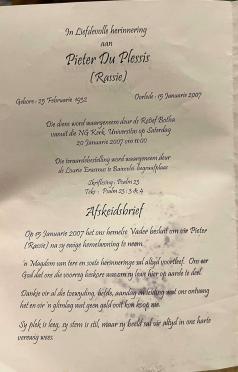 In Liefdevolle herinnering
aan
Pieter Du Plessis
(Rassie)
Gebore : 25 Februarie 1952
Oorlede : 15 Januarie 2007
Die diens word waargeneem deur ds Retief Botha
vanuit die NG Kerk, Universitas op Saterdag
20 Januarie 2007 om 11:00
Die teraardebestelling word waargeneem deur
ds Lourie Erasmus te Bainsvlei begraafplaas
Skriflesing : Psalm 23
Teks : Psalm 23 : 3 & 4
Afskeidsbrief
Op 15 Januarie 2007 het ons hemelse Vader besluit om vir Pieter
(Rassie) na sy ewige hemelwoning te neem.
'n Magdom van tere en soete herinneringe sal altyd voortleef. Ons eer
God dat ons die voorreg beskore was om sy lewe hier op aarde te deel.
Dankie vir al die toewyding, liefde, aandag en leiding wat ons ontvang
het en vir 'n glimlag wat geen geld ooit kon koop nie.
Sy plek is leeg, sy stem is stil, maar sy beeld sal vir altyd in ons harte
verewig wees.